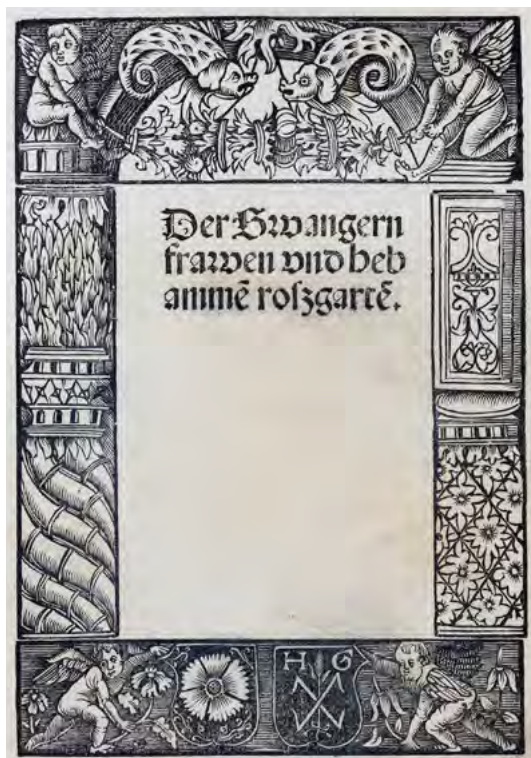 Der Swangern
frawen vnd heb
am̄mē roszgartē.
H G